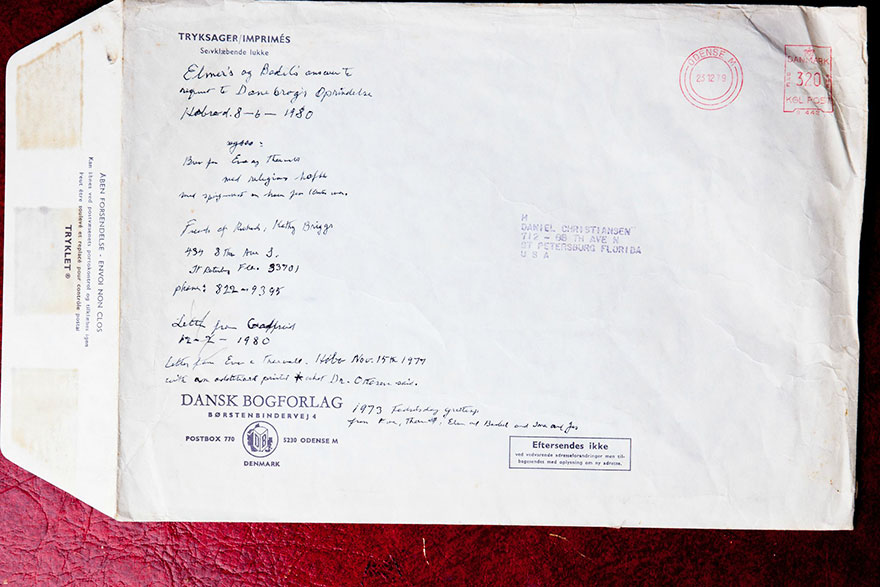 TRYKSAGER/IMPRIMÉS
Selvklæbende lukke
Elmer's og Bodil's answer to
request to Danebrog's Oprindelse
Hobro d. 8-6-1980
Brev fra Eva og Thorvald
med religiøs
med
Friends of Richard, Kathy Briggs
434 8 The Ave S,
St Petersburg Fla. 33701
phone: 822-9395
Letter from
12-7-1980
Letter from Eva & Thorvald. Hobro Nov. 15th 1977
with an additional printed * what Dr. said.
1973 Fødselsdag Greetings
from Eva, Thorvald, Elmer and Bodil and and
DANSK BOGFORLAG
BØRSTENBINDERVEJ 4
POSTBOX 770
5230 ODENSE M
DB
DENMARK
ODENSE M
23 12 79
DANMARK
320
KGL POST
M
DANIEL CHRISTIANSEN
712 - 88 TH AVE N
ST PETERSBURG FLORIDA
U S A
Eftersendes ikke
ved vedvarende adresseforandringer men til-
bagesendes med oplysning om ny adresse.
ÅBEN FORSENDELSE - ENVOI NON CLOS
Kan åbnes ved postvæsenets portokontrol og tilklæbes igen
Peut être soulevé et replacé pour contrôle postal
TRYKLET ®